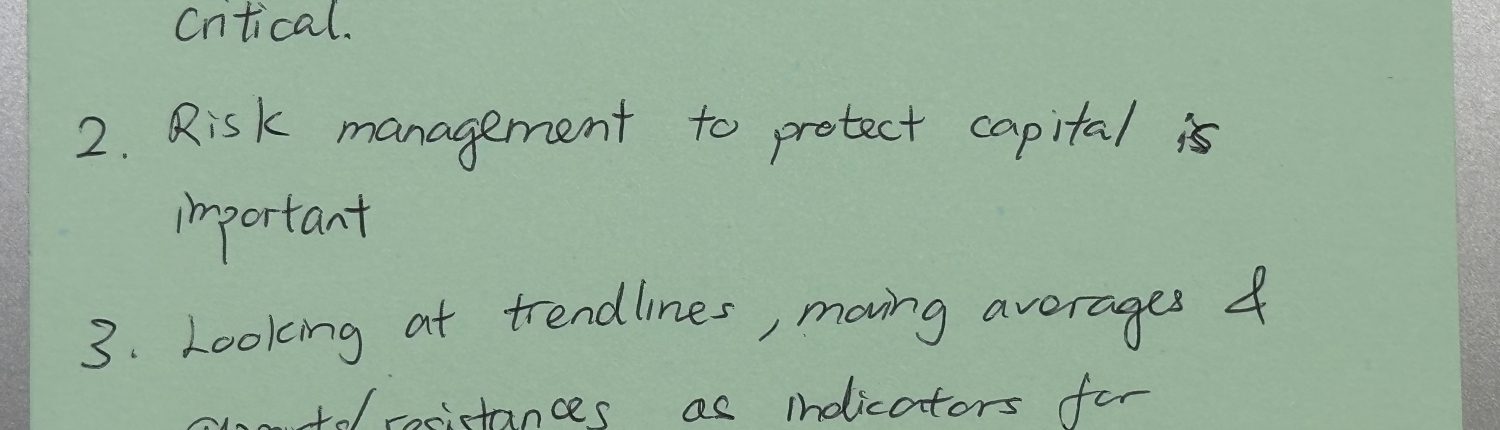 Critical.
2. Risk management to protect capital is
important
3. Looking at trendlines, moving averages &
resistances as indicators for